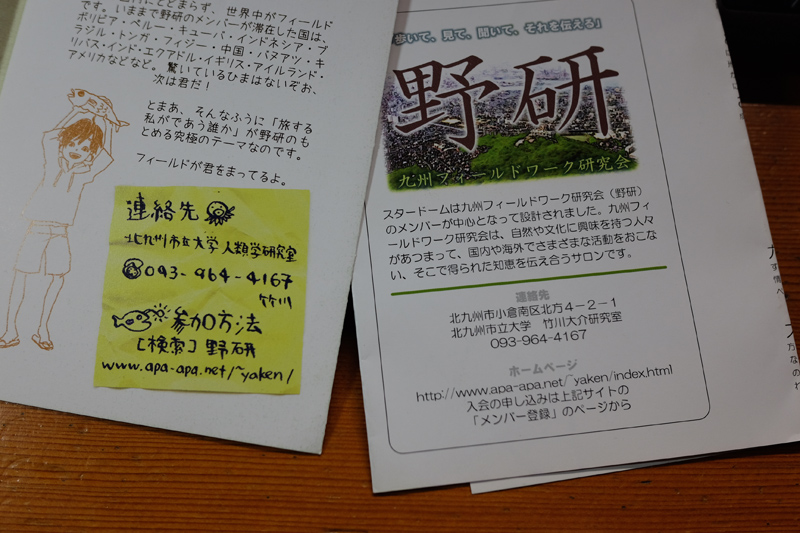 とどまらず、世界中がフィールド
です。いままで野研のメンバーが滞在した国は、
ボリビア・ペルー・キューバ・インドネシア・ブ
ラジル・トンガ・フィジー・中国・バヌアツ・キ
リバス・インド・エクアドル・イギリス・アイルランド・
アメリカなどなど。驚いているひまはないぞお、
次は君だ！
とまあ、そんなふうに「旅する
私がであう誰か」が野研のも
とめる究極のテーマなのです。
フィールドが君をまってるよ。
連絡先
北九州市立大学 人類学研究室
093-964-4167
竹川
参加方法
[検索] 野研
www.apa-apa.net/~yaken/
歩いて、見て、聞いて、それを伝える」
野研
九州フィールドワーク研究会
スタードームは九州フィールドワーク研究会（野研）
のメンバーが中心となって設計されました。九州フィ
ールドワーク研究会は、自然や文化に興味を持つ人々
があつまって、国内や海外でさまざまな活動をおこな
い、そこで得られた知恵を伝え合うサロンです。
連絡先
北九州市小倉南区北方４－２－１
北九州市立大学　竹川大介研究室
093-964-4167
ホームページ
http://www.apa-apa.net/~yaken/index.html
入会の申し込みは上記サイトの
「メンバー登録」のページから